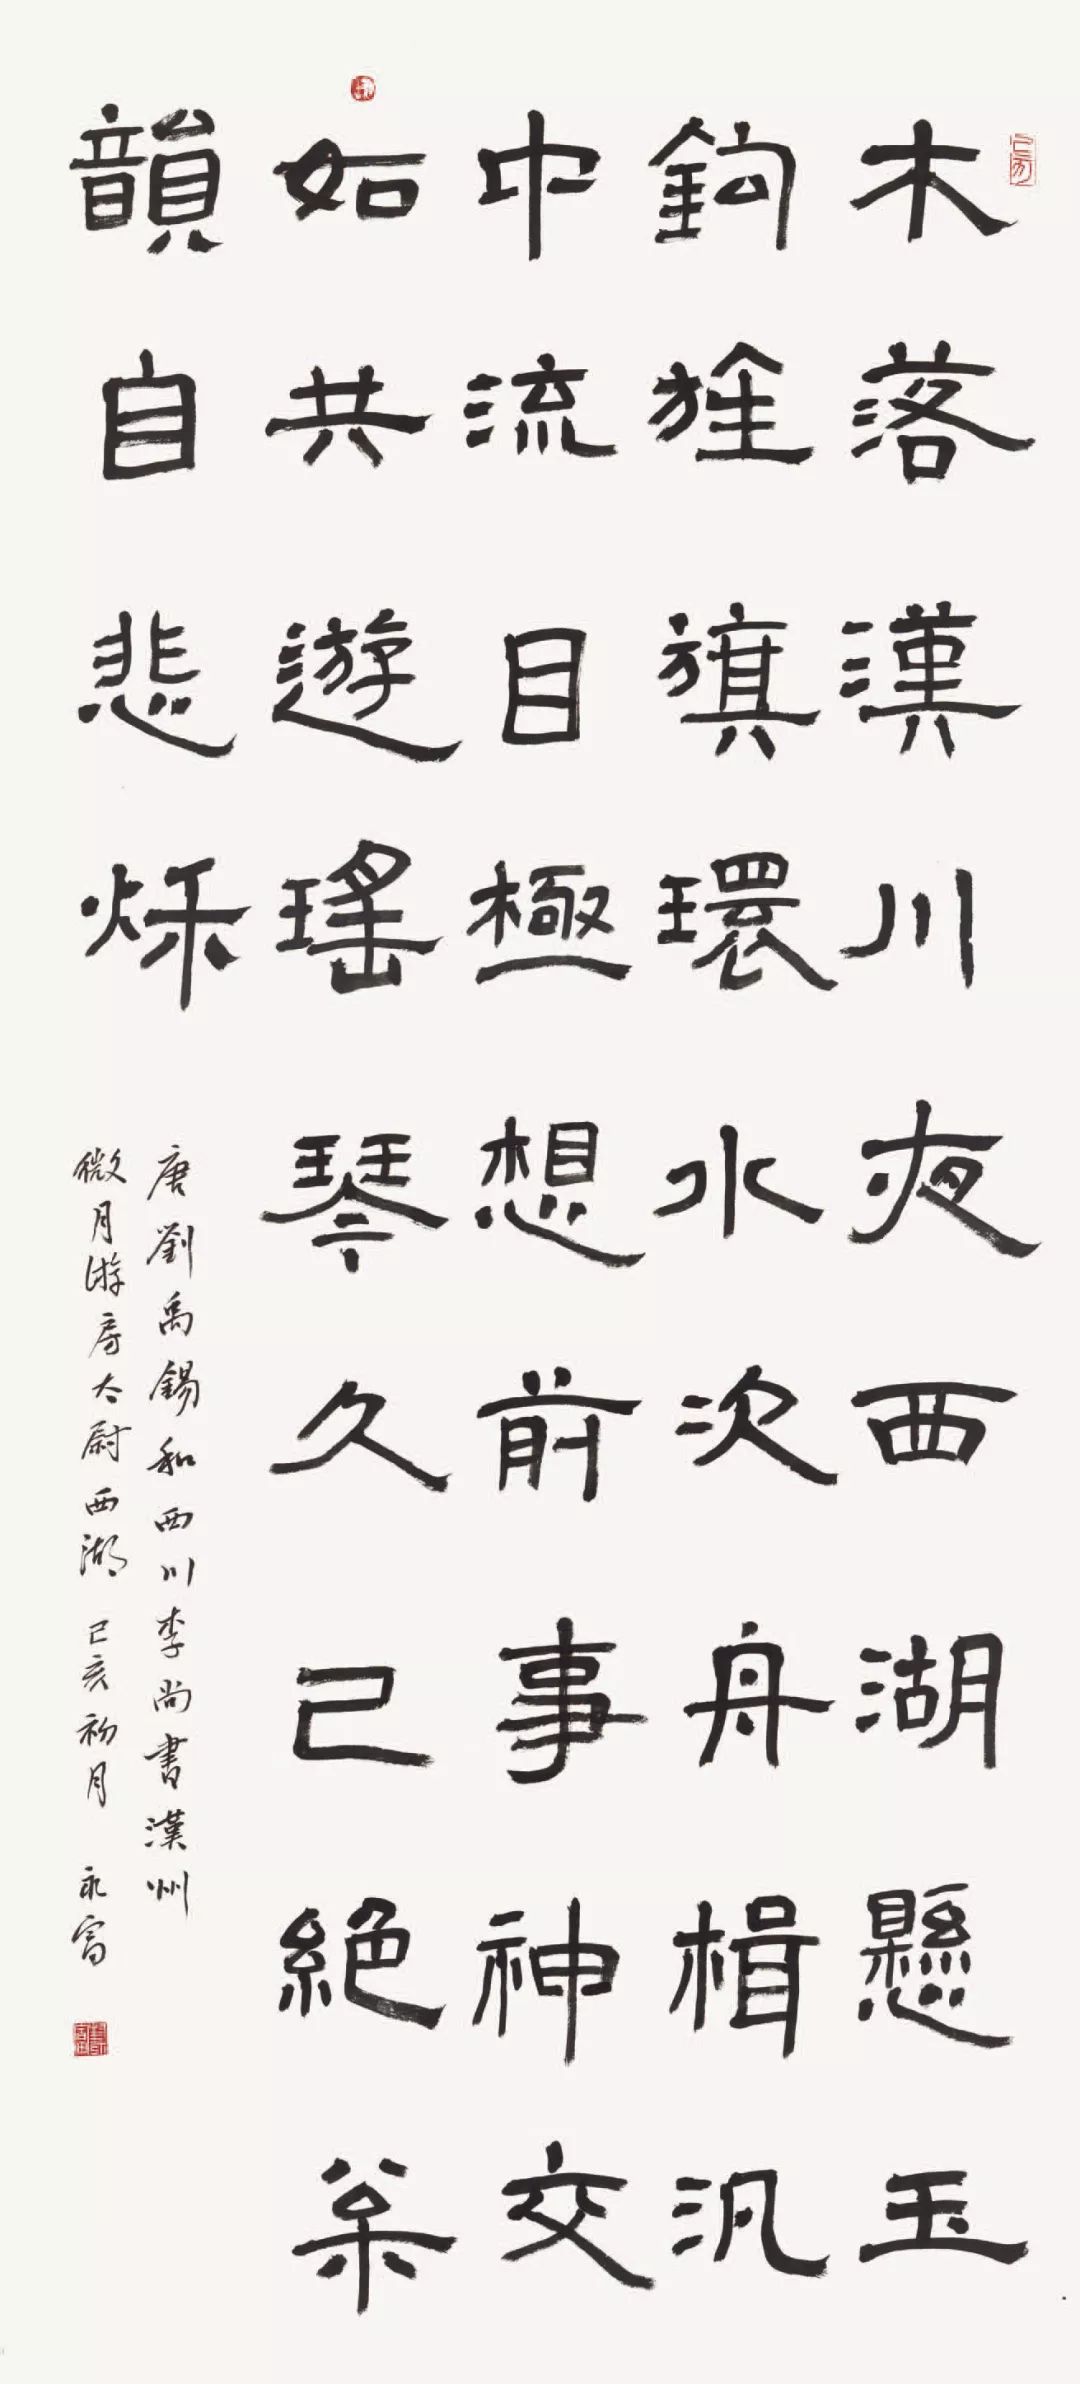 木落漢川夜西湖懸玉
鉤旌旗環水次舟楫汎
中流目極想前事神交
如共遊瑤琴久已絕枀
韻自悲秌
唐劉禹錫和西川李尚書漢州
微月游房太尉西湖 己亥初月 永富
己亥